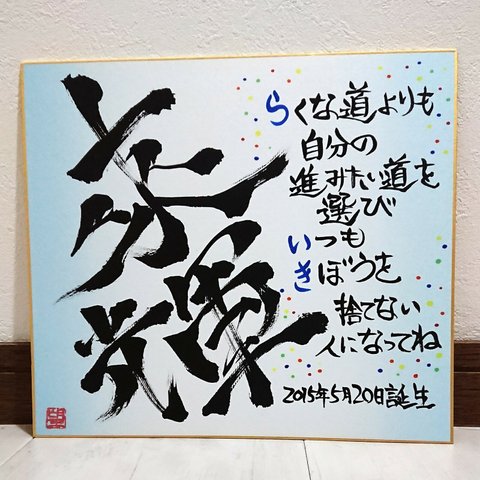 来輝
らくな道よりも
自分の
進みたい道を
選び
いつも
きぼうを
捨てない
人になってね
2015年5月20日誕生